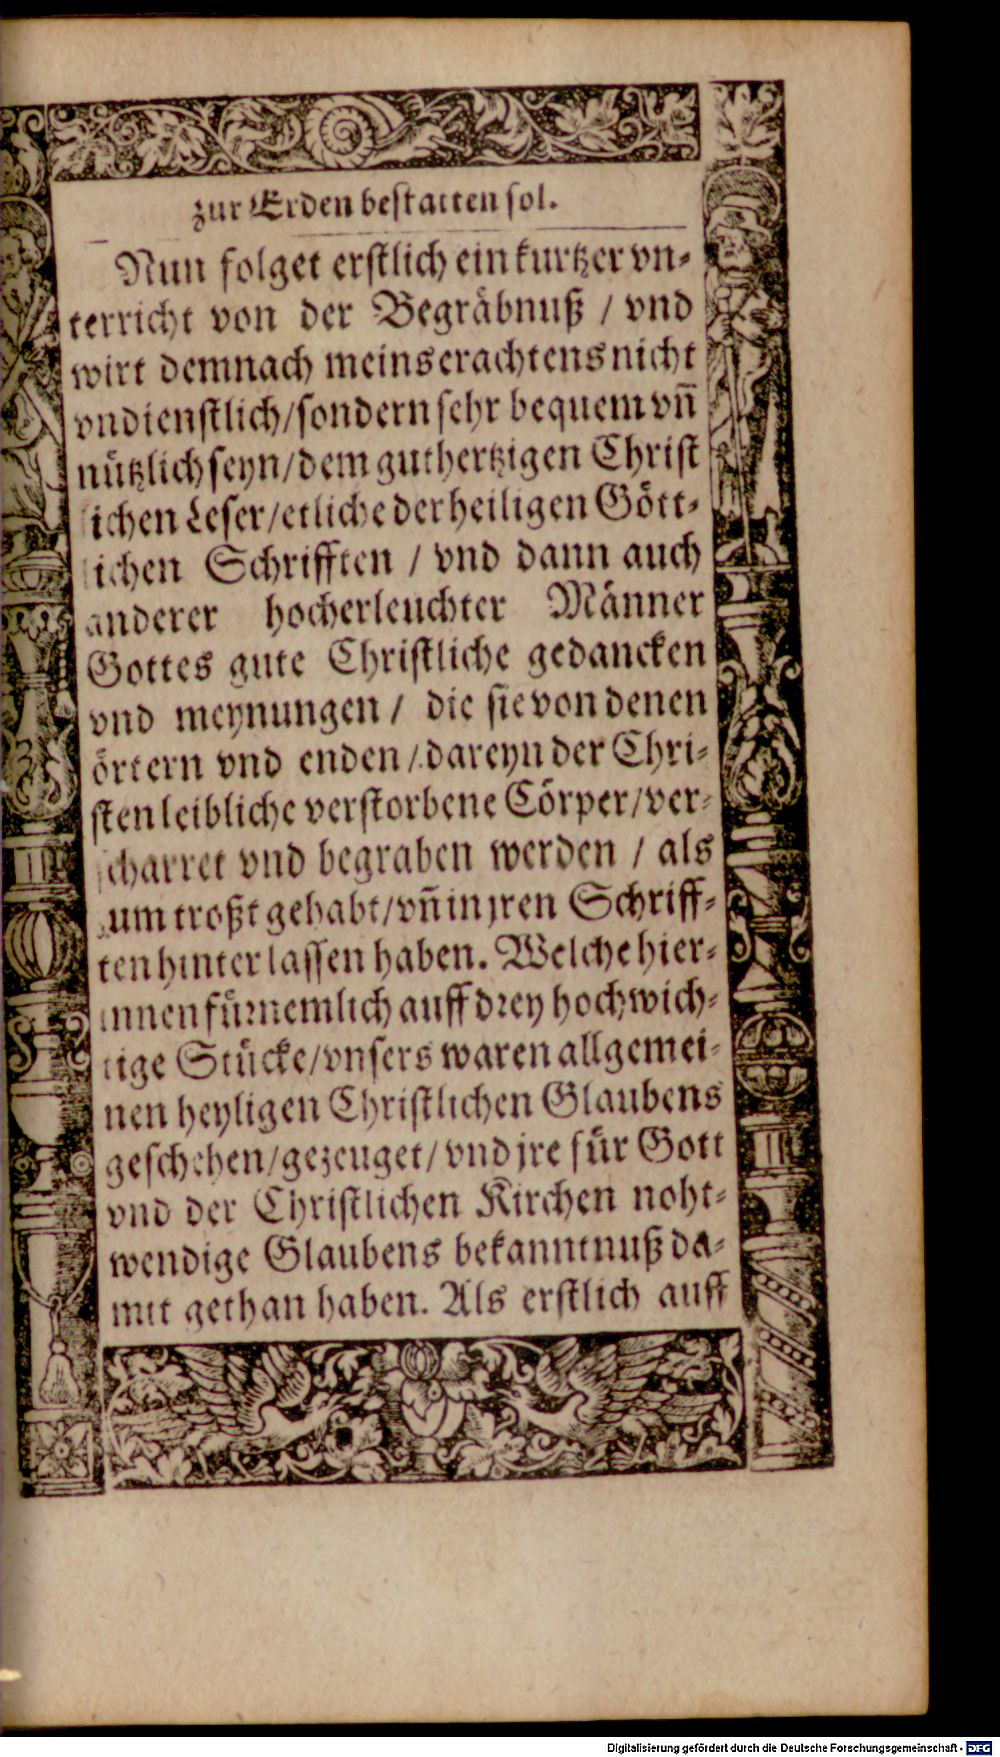 zur Erden bestatten sol.
Nun folget erstlich ein kurtzer vn-
terricht von der Begräbnuß / vnd
wirt demnach meins erachtens nicht
vndienstlich/sondern sehr bequem vn̄
nützlich seyn/dem guthertzigen Christ
lichen Leser/etliche der heiligen Gött-
lichen Schrifften / vnd dann auch
anderer hocherleuchter Männer
Gottes gute Christliche gedancken
vnd meynungen / die sie von denen
örtern vnd enden / dareyn der Chri-
sten leibliche verstorbene Cörper/ver-
scharret vnd begraben werden / als
zum troßt gehabt/vn̄ in jren Schriff-
ten hinterlassen haben. Welche hier-
innen fürnemlich auff drey hochwich-
tige Stücke/vnsers waren allgemei-
nen heyligen Christlichen Glaubens
geschehen/gezeuget/vnd jre für Gott
vnd der Christlichen Kirchen noht-
wendige Glaubens bekanntnuß da-
mit gethan haben. Als erstlich auff
Digitalisierung gefördert durch die Deutsche Forschungsgemeinschaft - DFG